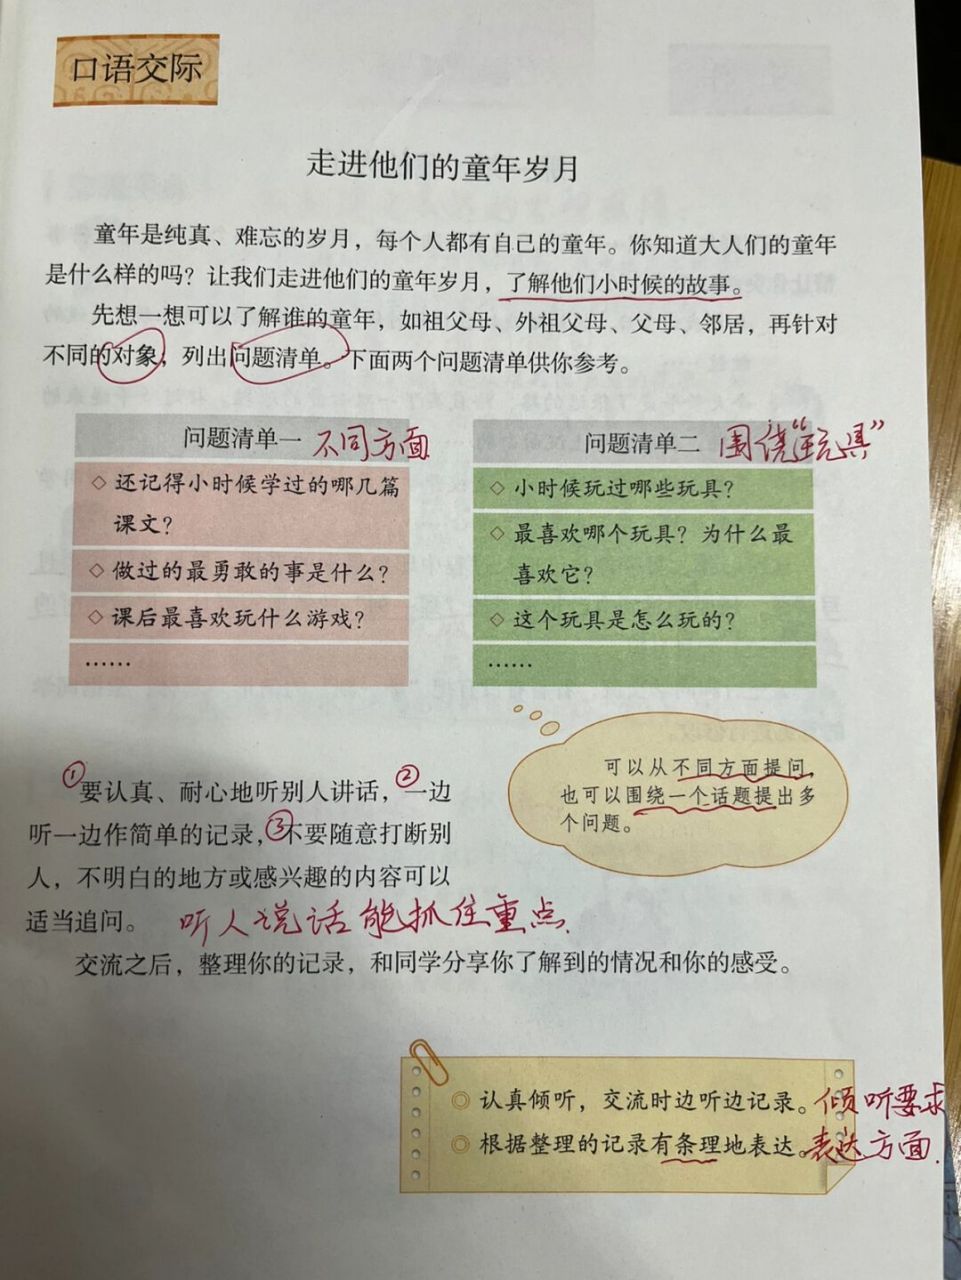 口语交际
走进他们的童年岁月
童年是纯真、难忘的岁月，每个人都有自己的童年。你知道大人们的童年
是什么样的吗？让我们走进他们的童年岁月，了解他们小时候的故事。
先想一想可以了解谁的童年，如祖父母、外祖父母、父母、邻居，再针对
不同的对象，列出问题清单。下面两个问题清单供你参考。
问题清单一 不同方面
◇ 还记得小时候学过的哪几篇
课文？
◇ 做过的最勇敢的事是什么？
◇ 课后最喜欢玩什么游戏？
……
问题清单二 围绕“玩具”
◇ 小时候玩过哪些玩具？
◇ 最喜欢哪个玩具？为什么最
喜欢它？
◇ 这个玩具是怎么玩的？
……
可以从不同方面提问，
也可以围绕一个话题提出多
个问题。
①要认真、耐心地听别人讲话，②一边
听一边作简单的记录，③不要随意打断别
人，不明白的地方或感兴趣的内容可以
适当追问。 听人说话能抓住重点.
交流之后，整理你的记录，和同学分享你了解到的情况和你的感受。
◎ 认真倾听，交流时边听边记录。倾听要求
◎ 根据整理的记录有条理地表达。表达方面.